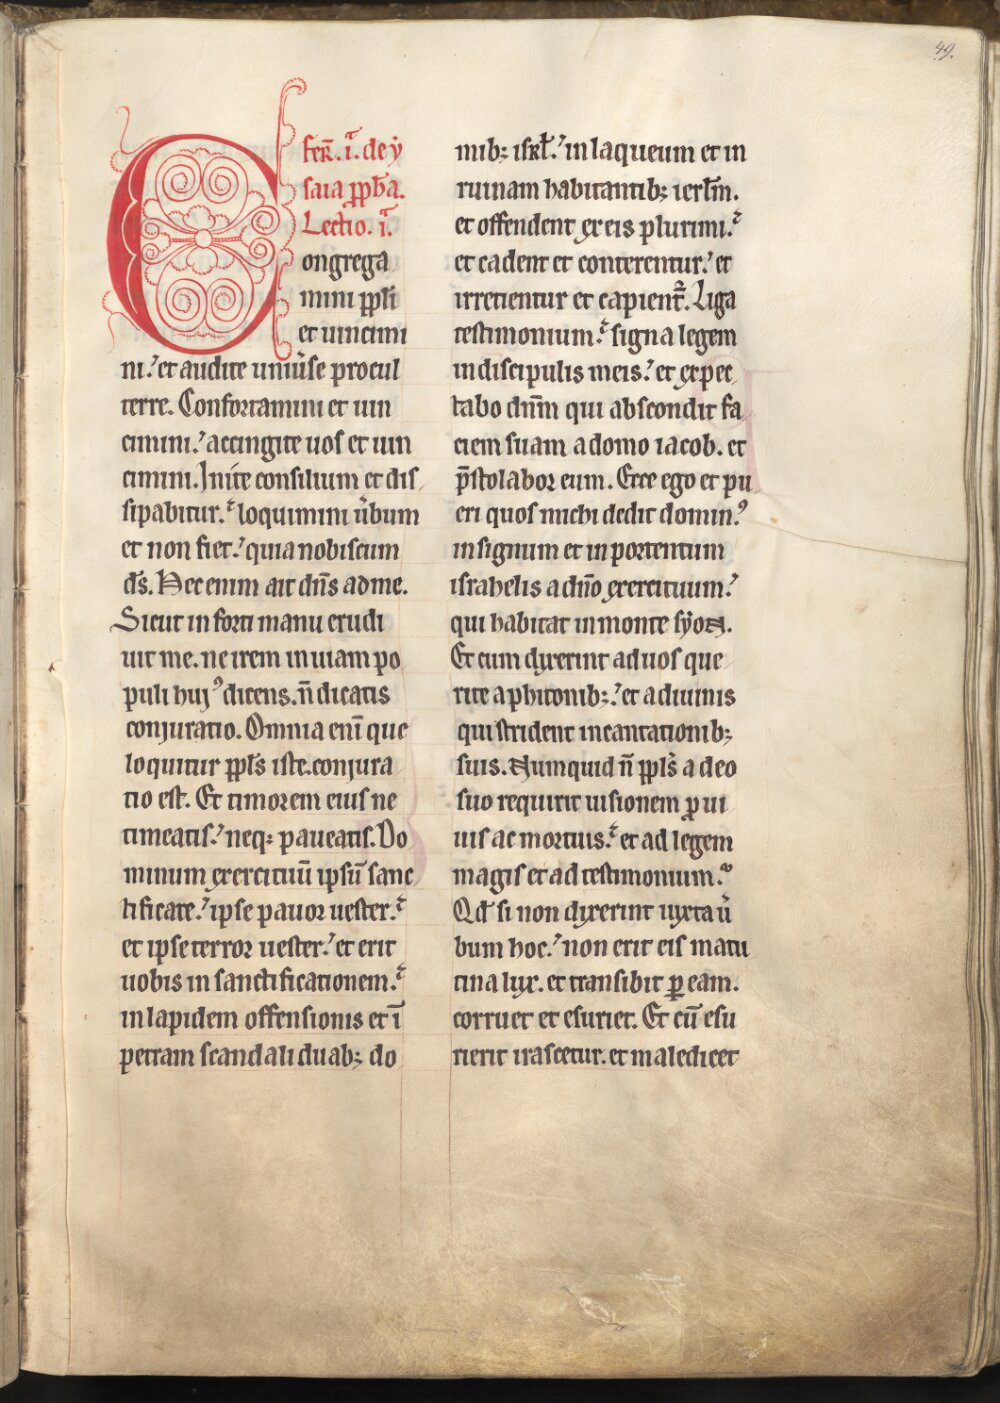 49.
fer̄. i͞. de ẏ
saia ꝓph̄a.
Lectio. i͞.
Congrega
mini ppl̄i
et uincimi
ni. et audite uniu̾se procul
terre. Confortamini et uin
cimini. accingite uos et uin
cimini. Inite consilium et dis
sipabitur. loquimini u̾bum
et non fiet. quia nobiscum
d̄s. Hec enim ait dn̄s ad me.
Sicut in forti manu erudi
uit me. ne irem in uiam po
puli huiꝰ dicens. n̄ dicatis
coniuratio. Omnia eni͞ que
loquitur ppl̄s iste. coniura
tio est. Et timorem eius ne
timeatis. neq; paueatis. Do
minum exercituū ipsū sanc
tificate. ipse pauor uester.
et ipse terror uester. et erit
uobis in sanctificationem.
in lapidem offensionis et ī
petram scandali duab; do
mib; isrl̄. in laqueum et in
ruinam habitantib; ierl̄m.
et offendent ex eis plurimi.
et cadent et conterentur. et
irretientur et capient᷑. Liga
testimonium. signa legem
in discipulis meis. et expec
tabo dn̄m qui abscondit fa
ciem suam a domo iacob. et
p̄stolabor eum. Ecce ego et pu
eri quos michi dedit dominꝰ
in signum et in portentum
israhelis a dn̄o exercituum.
qui habitat in monte sẏon.
Et cum dixerint ad uos que
rite a phitonib;. et a diuinis
qui strident incantationib;
suis. Numquid n̄ ppl̄s a deo
suo requirit uisionem ꝓ ui
uis ac mortuis. et ad legem
magis et ad testimonium.
Qd̄ si non dixerint iuxta u̾
bum hoc. non erit eis matu
tina lux. et transibit ꝑ eam.
corruet et esuriet. Et cū esu
rierit irascetur. et maledicet